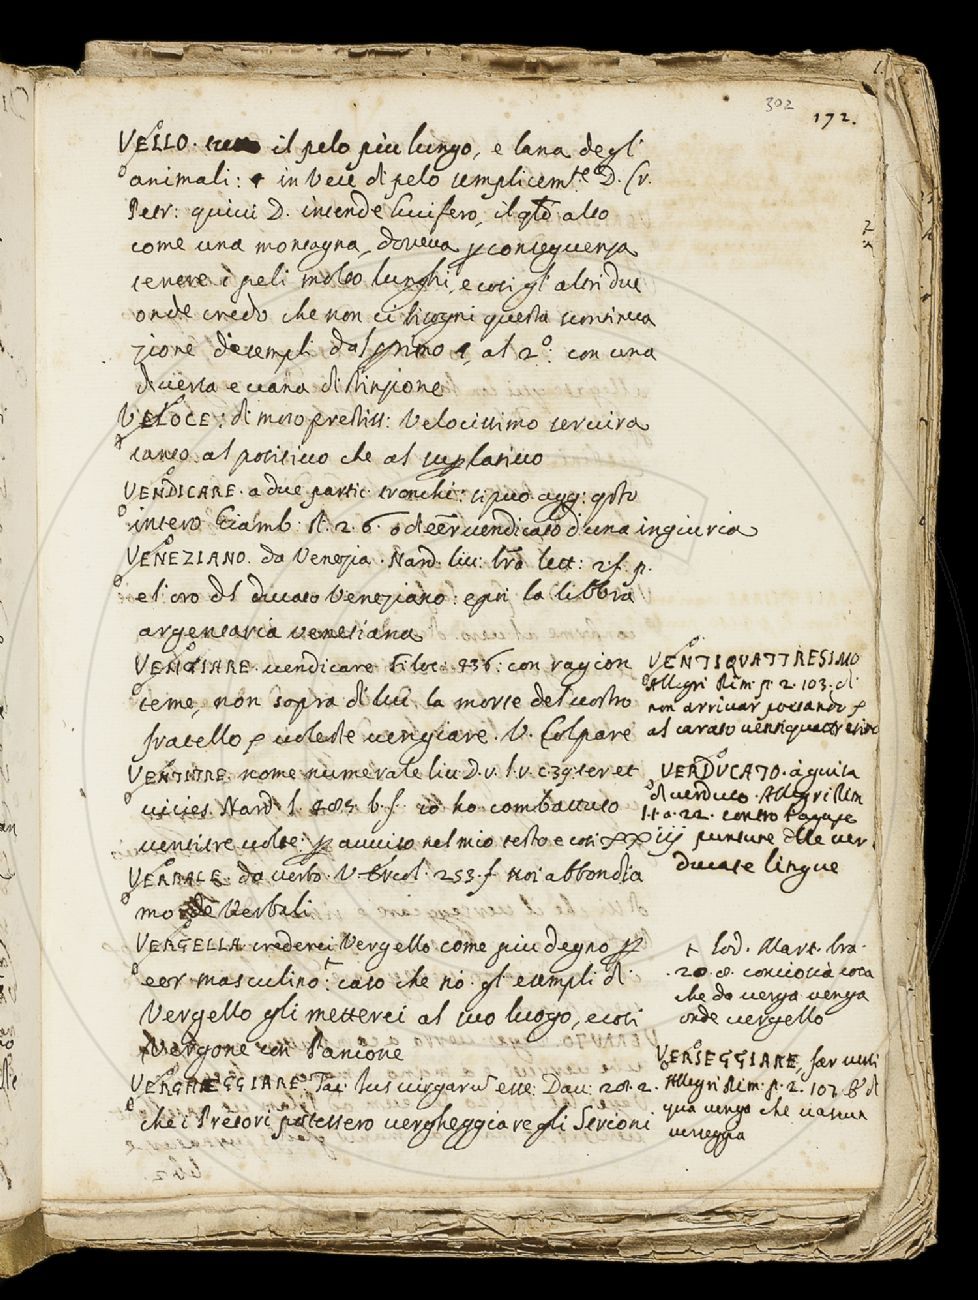 302
172.
VELLO. il pelo piu lungo, e lana degl'
animali: in vece di pelo semplicem.te D.
Petr: quivi D. intende Lucifero, il qle alto
come una montagna, doveva p conseguenza
tenere i peli molto lunghi, e cosi gl'altri due
onde credo che non ci bisogni questa continua
zione d'esempli dal primo al 2o. con una
diversa e vana distinzione
VELOCE: di moto prestiss: Velocissimo servira
tanto al positivo che al suplativo
VENDICARE. a due partic. tronchi: si puo agg: qsto
intero Giamb: st. 2. 6. o d'eer vendicato d'una ingiuria
VENEZIANO. da Venezia. Nard. liv: lett: 2. f. p.
el'oro del ducato Veneziano: la libbra
argentaria venetiana
VENGIARE. vendicare filoc. 436: con ragion
teme, non sopra di lui la morte del vostro
fratello p voleste vengiare. V. Colpare
VENTITRE. nome numerale liv. D. v. l. v. c. 39. ter et
vicies Nard. l. 484. b. f. io ho combattuto
ventitre volte: p avviso nel mio testo e cosi xxiij
VERBALE. da verbo. V. Ercol. 253. f noi abbondia
mo de Verbali
VERGELLA crederei Vergello come piu degno p
eer masculino: + caso che no. gl'esempli di
Vergello gli metterei al suo luogo, e cosi
Vergone con Panione
VERGHEGGIARE. Tac. Ius virgarum esse Dav: 20. 2.
che i Pretori potessero vergheggiare gli Strioni
VENTIQUATTRESIMO
Allegri Rim. p. 2. 103. di
non arrivar portando p
al carato ventiquattresimo
VERDUCATO. a guisa
di verduco. Allegri Rim
22. contro
punture delle ver
ducate lingue
+ lod. Mart.
20. 8. conciosia cosa
che da verga venga
onde vergello
VERSEGGIARE, far versi
Allegri Rim. p. 2. 107. di
qua vengo che
verseggia